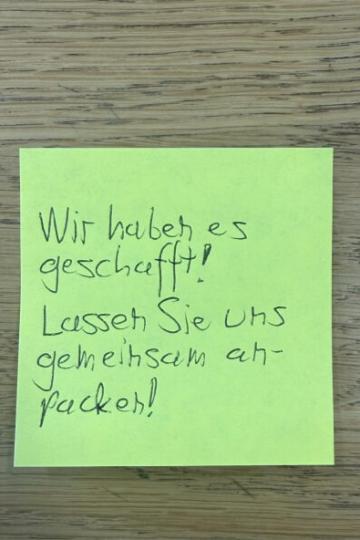 Wir haben es
geschafft!
Lassen Sie uns
gemeinsam an-
packen!